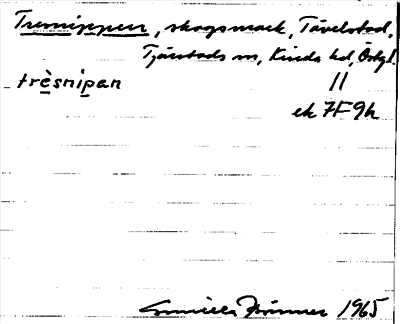 Tresnippen, skogsmark, Tåvelstad,
Tjärstads sn, Kinda hd, Östg l.
trèsnipan //
ek 7F9h
Gunilla 1965